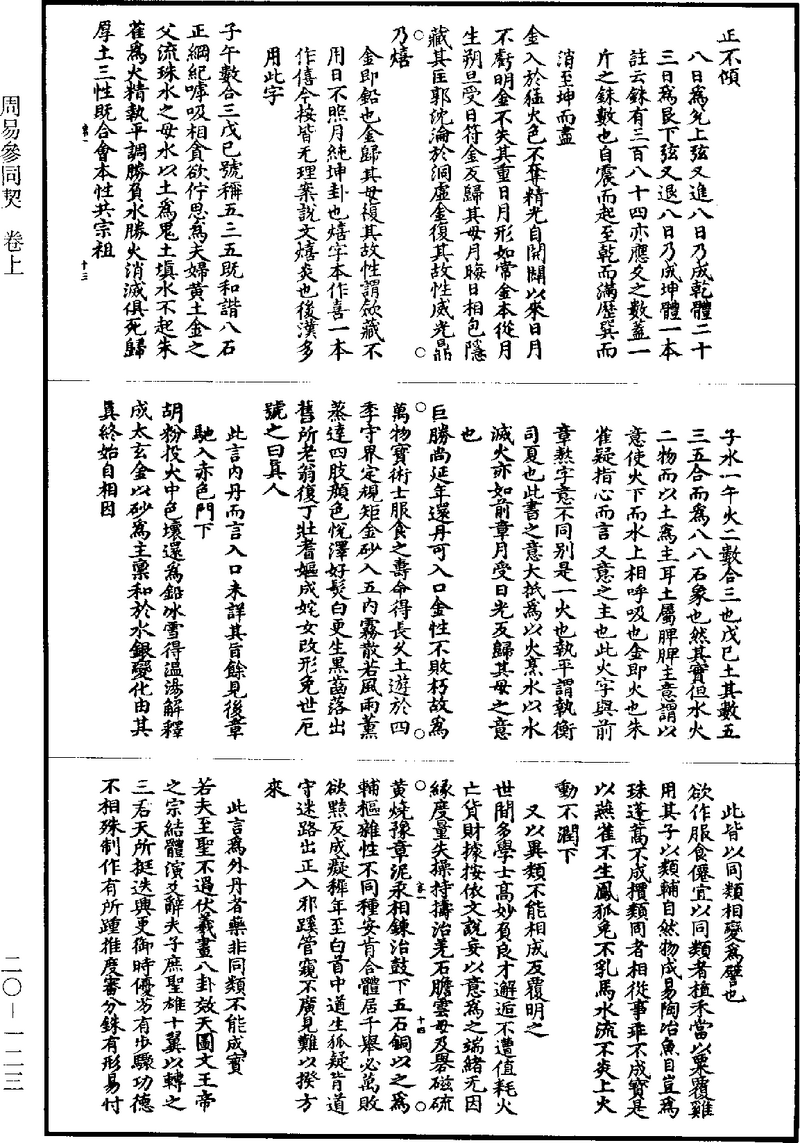 周易參同契 卷上
二〇—一二三
正不傾
八日為兌上弦又進八日乃成乾體二十
三日為艮下弦又退八日乃成坤體一本
註云銖有三百八十四亦應爻之數蓋一
斤之銖數也自震而起至乾而滿歷巽而
消至坤而盡
金入於猛火色不奪精光自開闢以來日月
不虧明金不失其重日月形如常金本從月
生朔旦受日符金反歸其母月晦日相包隱
藏其匡郭沈淪於洞虛金復其故性威光鼎
乃熺
金即鉛也金歸其母複其故性謂欲藏不
用日不照月純坤卦也熺字本作喜一本
作僖今按皆无理案說文熺炎也後漢多
用此字
子午數合三戊巳號稱五三五既和諧八石
正綱紀嘑吸相貪欲佇思為夫婦黃土金之
父流珠水之母水以土為鬼土填水不起朱
雀為火精執平調勝負水勝火消滅俱死歸
厚土三性既合會本性共宗祖
十三
子水一午火二數合三也戊巳土其數五
三五合而為八八石象也然其實但水火
二物而以土為主耳土屬脾脾主意謂以
意使火下而水上相呼吸也金即火也朱
雀疑指心而言又意之主也此火字與前
章熬字意不同別是一火也執平謂執衡
司夏也此書之意大抵為以火烹水以水
滅火亦如前章月受日光反歸其母之意
也
巨勝尚延年還丹可入口金性不敗朽故為
萬物寶術士服食之壽命得長久土遊於四
季守界定規矩金砂入五內霧散若風雨薰
蒸達四肢顏色悅澤好髮白更生黑齒落出
舊所老翁復丁壯耆嫗成姹女改形免世厄
號之曰真人
此言內丹而言入口未詳其旨餘見後章
馳入赤色門下
胡粉投火中色壞還為鉛冰雪得溫湯解釋
成太玄金以砂為主稟和於水銀變化由其
真終始自相因
此皆以同類相變為譬也
欲作服食僊宜以同類者植禾當以粟覆雞
用其子以類輔自然物成易陶冶魚目豈為
珠蓬蒿不成檟類同者相從事乖不成寶是
以燕雀不生鳳狐兔不乳馬水流不炎上火
動不潤下
又以異類不能相成反覆明之
世間多學士高妙負良才邂逅不遭值耗火
亡貨財據按依文說妄以意為之端緒无因
緣度量失操持擣治羌石膽雲母及礜磁硫
黃燒豫章泥汞相鍊治鼓下五石銅以之為
輔樞雜性不同種安肯合體居千舉必萬敗
欲黠反成癡稺年至白首中道生狐疑背道
守迷路出正入邪蹊管窺不廣見難以揆方
來
十四
此言為外丹者藥非同類不能成寶
若夫至聖不過伏羲畫八卦效天圖文王帝
之宗結體演爻辭夫子庶聖雄十翼以轉之
三君天所挺迭興更御時優劣有步驟功德
不相殊制作有所踵推度審分銖有形易忖